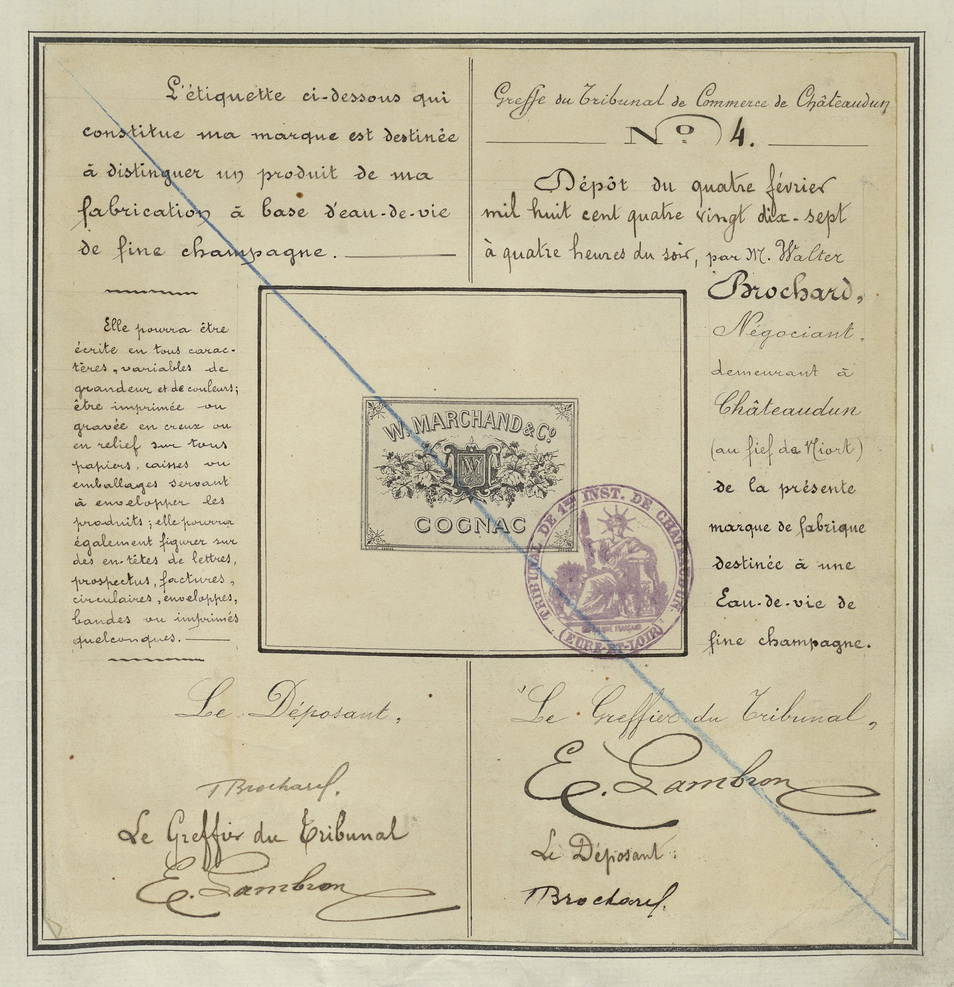 L'étiquette ci-dessous qui
constitue ma marque est destinée
à distinguer un produit de ma
fabrication à base d'eau-de-vie
de fine champagne.
Elle pourra être
écrite en tous carac-
tères, variables de
grandeur et de couleurs;
être imprimée ou
gravée en creux ou
en relief sur tous
papiers, caisses ou
emballages servant
à envelopper les
produits; elle pourra
également figurer sur
des en-têtes de lettres,
prospectus, factures,
circulaires, enveloppes,
bandes ou imprimés
quelconques.
Greffe du Tribunal de Commerce de Châteaudun
No 4.
Dépôt du quatre février
mil huit cent quatre vingt dix-sept
à quatre heures du soir, par M. Walter
Brochard,
Négociant,
demeurant à
Châteaudun
(au fief de Niort)
de la présente
marque de fabrique
destinée à une
Eau-de-vie de
fine champagne.
W. MARCHAND & Co
COGNAC
TRIBUNAL DE 1re INST. DE CHATEAUDUN.
(EURE-ET-LOIR)
Le Déposant,
Brochard.
Le Greffier du Tribunal
E. Lambron
Le Greffier du Tribunal,
E. Lambron
Le Déposant:
Brochard.